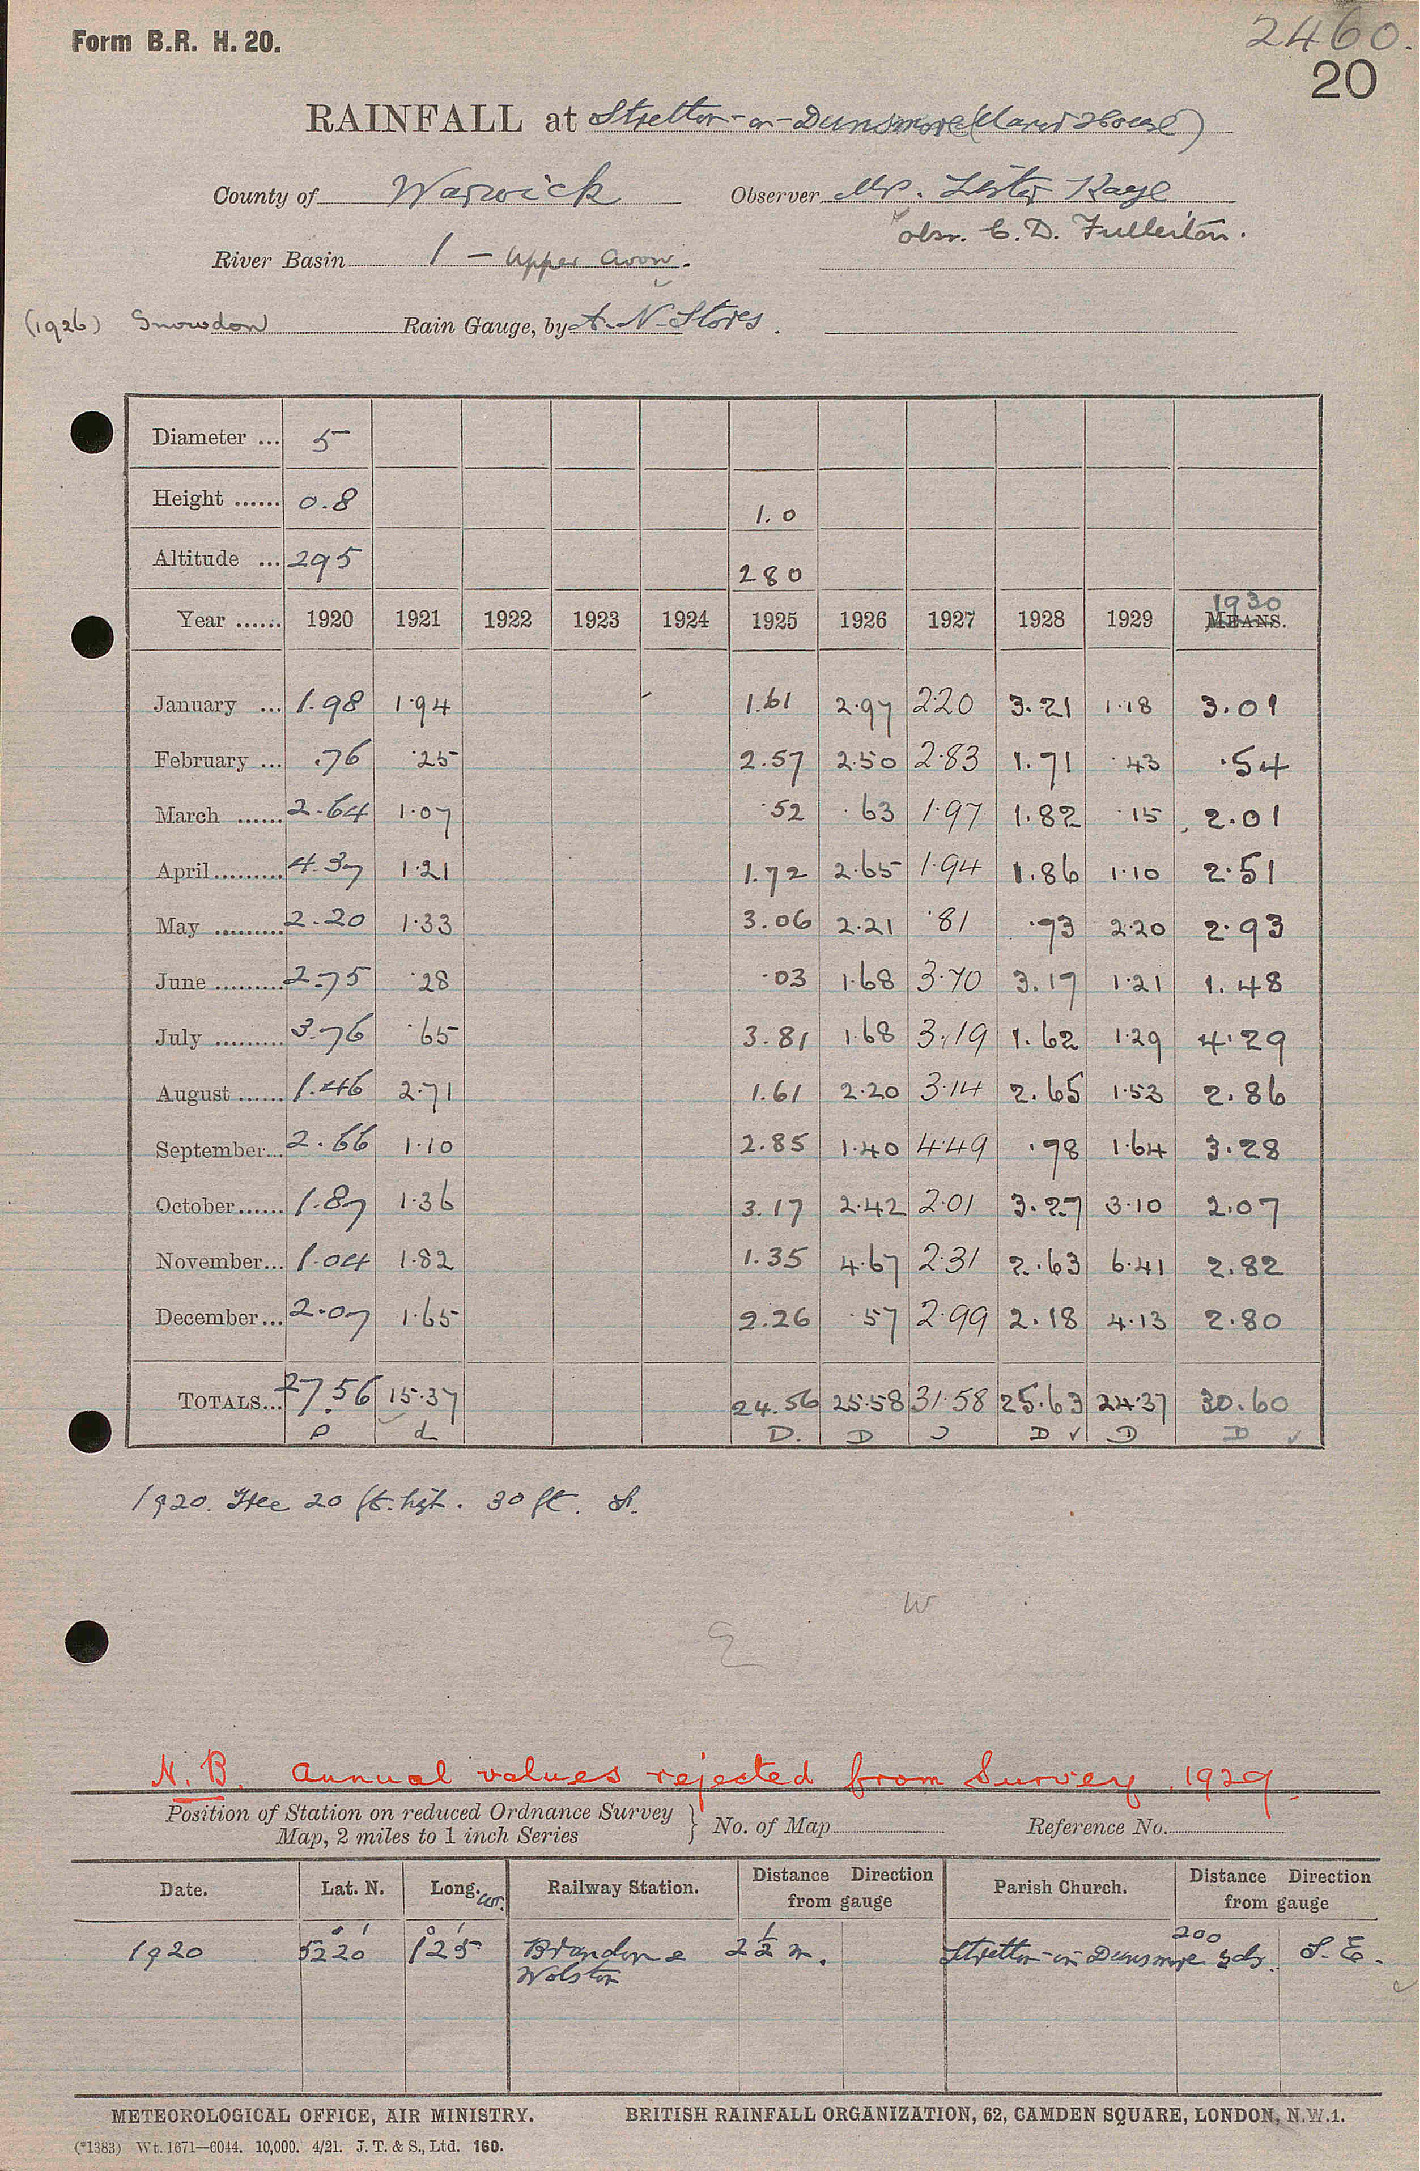 Form B.R. H. 20.
2460.
20
RAINFALL at Stretton-on-Dunsmore ( House)
County of Warwick Observer Mr. Lister Kaye
obsr. C. D. Fullerton.
River Basin 1 - Upper Avon.
(1926) Snowdon Rain Gauge, by A. N. Stores.
Diameter ... 5
Height ...... 0.8 1.0
Altitude ... 295 280
Year ...... 1920 1921 1922 1923 1924 1925 1926 1927 1928 1929 MEANS. 1930
January ... 1.98 1.94 1.61 2.97 2.20 3.21 1.18 3.01
February ... .76 .25 2.57 2.50 2.83 1.71 .43 .54
March ...... 2.64 1.07 .52 .63 1.97 1.82 .15 2.01
April ......... 4.37 1.21 1.72 2.65 1.94 1.86 1.10 2.51
May ......... 2.20 1.33 3.06 2.21 .81 .93 2.20 2.93
June ......... 2.75 .28 .03 1.68 3.70 3.17 1.21 1.48
July ......... 3.76 .65 3.81 1.68 3.19 1.62 1.29 4.29
August ...... 1.46 2.71 1.61 2.20 3.14 2.65 1.53 2.86
September... 2.66 1.10 2.85 1.40 4.49 .98 1.64 3.28
October...... 1.87 1.36 3.17 2.42 2.01 3.27 3.10 2.07
November... 1.04 1.82 1.35 4.67 2.31 2.63 6.41 2.82
December... 2.07 1.65 2.26 .57 2.99 2.18 4.13 2.80
TOTALS... 27.56 15.37 24.56 25.58 31.58 25.63 24.37 30.60
P d D. D D D D
1920. Tree 20 ft. hgh. 30 ft. S.
W
N.B. Annual values rejected from Survey 1929.
Position of Station on reduced Ordnance Survey Map, 2 miles to 1 inch Series } No. of Map Reference No.
Date. Lat. N. Long. W. Railway Station. Distance Direction from gauge Parish Church. Distance Direction from gauge
1920 52° 20' 1° 25' Brandon & Wolston 2½ m. Stretton-on-Dunsmore 200 yds. S. E.
METEOROLOGICAL OFFICE, AIR MINISTRY. BRITISH RAINFALL ORGANIZATION, 62, CAMDEN SQUARE, LONDON, N.W.1.
(*1383) Wt. 1671—6044. 10,000. 4/21. J. T. & S., Ltd. 160.